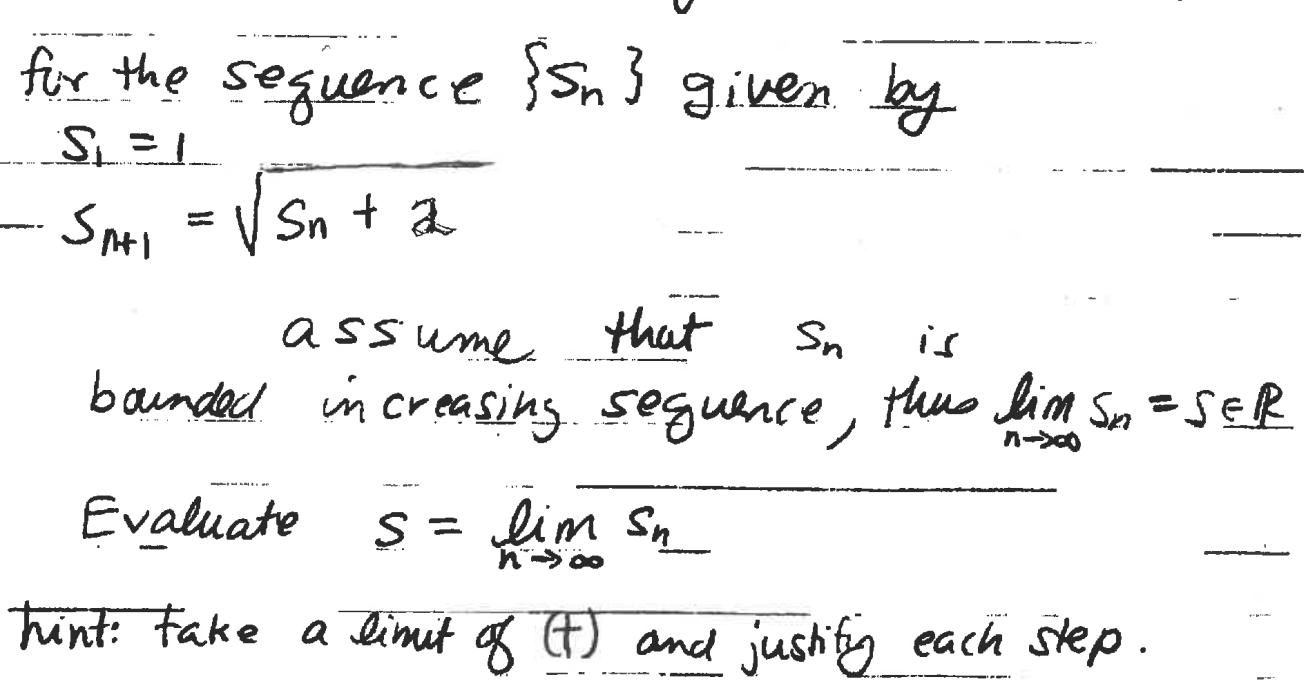 for the sequence {Sn} given by
S₁ = 1
Sₙ₊₁ = √(Sₙ + 2)
assume that Sₙ is
bounded increasing sequence, thus lim Sₙ = S ∈ ℝ
n→∞
Evaluate S = lim Sₙ
n→∞
hint: take a limit of (†) and justify each step.